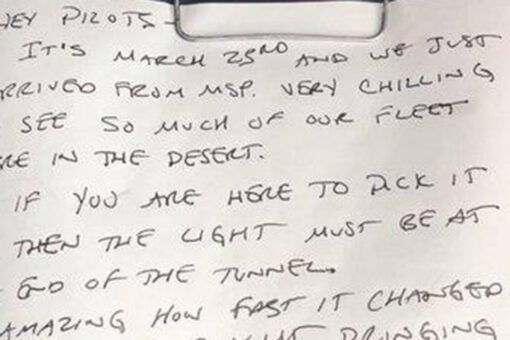 HEY PILOTS -
IT'S MARCH 23RD AND WE JUST
RRIVED FROM MSP. VERY CHILLING
SEE SO MUCH OF OUR FLEET
RE IN THE DESERT.
IF YOU ARE HERE TO PICK IT
THEN THE LIGHT MUST BE AT
END OF THE TUNNEL.
AMAZING HOW FAST IT CHANGED
BRINGING